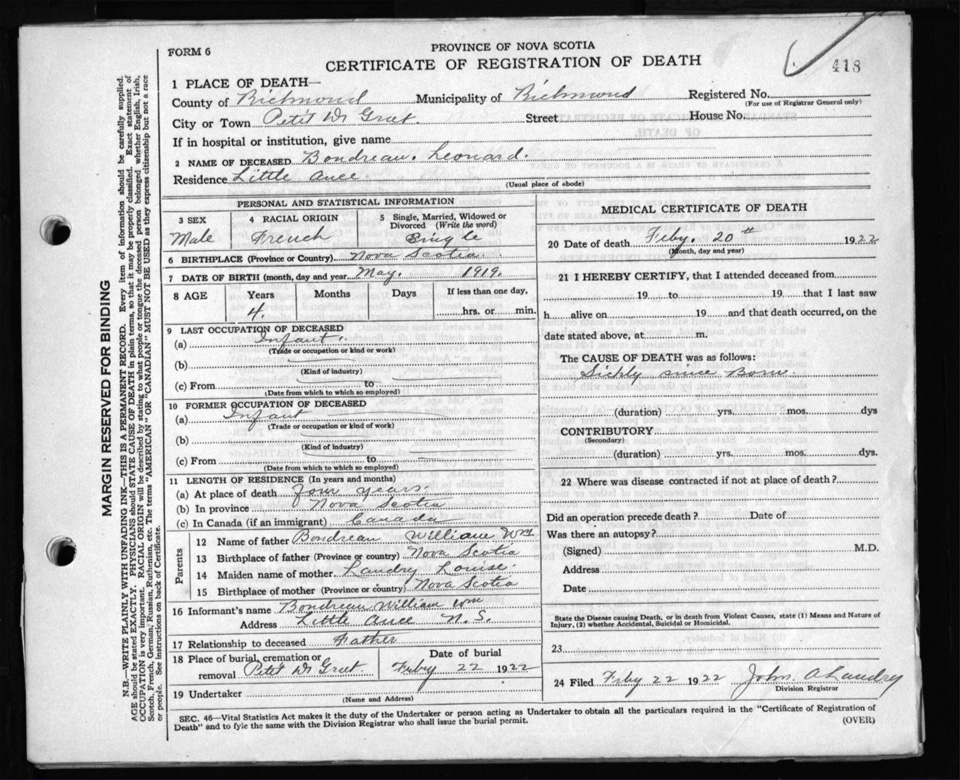 FORM 6
PROVINCE OF NOVA SCOTIA
CERTIFICATE OF REGISTRATION OF DEATH
418
1 PLACE OF DEATH—
County of Richmond Municipality of Richmond Registered No.
(For use of Registrar General only)
City or Town Petit De Grat. Street House No.
If in hospital or institution, give name
2 NAME OF DECEASED Boudreau. Leonard.
Residence Little Ance
(Usual place of abode)
PERSONAL AND STATISTICAL INFORMATION
3 SEX 4 RACIAL ORIGIN 5 Single, Married, Widowed or Divorced (Write the word)
Male French Single
6 BIRTHPLACE (Province or Country) Nova Scotia
7 DATE OF BIRTH (month, day and year) May. 1919.
8 AGE Years Months Days If less than one day,
4. hrs. or min.
9 LAST OCCUPATION OF DECEASED
(a) Infant
(Trade or occupation or kind or work)
(b)
(Kind of industry)
(c) From to
(Date from which to which so employed)
10 FORMER OCCUPATION OF DECEASED
(a) Infant
(Trade or occupation or kind of work)
(b)
(Kind of industry)
(c) From to
(Date from which to which so employed)
11 LENGTH OF RESIDENCE (In years and months)
(a) At place of death four years.
(b) In province Nova Scotia
(c) In Canada (if an immigrant) Canada
Parents
12 Name of father Boudreau William Wm
13 Birthplace of father (Province or country) Nova Scotia
14 Maiden name of mother. Landry Louise.
15 Birthplace of mother (Province or country) Nova Scotia
16 Informant's name Boudreau William Wm
Address Little Ance N. S.
17 Relationship to deceased Father
18 Place of burial, cremation or removal Petit De Grat Date of burial Feby 22 1922
19 Undertaker
(Name and Address)
MEDICAL CERTIFICATE OF DEATH
20 Date of death Feby. 20th 1922
(Month, day and year)
21 I HEREBY CERTIFY, that I attended deceased from
19 to 19 that I last saw
h alive on 19 and that death occurred, on
date stated above, at m.
The CAUSE OF DEATH was as follows:
Sickly since Born.
(duration) yrs. mos. dys
CONTRIBUTORY
(Secondary)
(duration) yrs. mos. dys.
22 Where was disease contracted if not at place of death?
Did an operation precede death? Date of
Was there an autopsy?
(Signed) M.D.
Address
Date
State the Disease causing Death, or in death from Violent Causes, state (1) Means and Nature of
Injury, (2) whether Accidental, Suicidal or Homicidal.
23
24 Filed Feby 22 1922 John A Landry
Division Registrar
SEC. 46—Vital Statistics Act makes it the duty of the Undertaker or person acting as Undertaker to obtain all the particulars required in the "Certificate of Registration of
Death" and to fyle the same with the Division Registrar who shall issue the burial permit.
(OVER)
MARGIN RESERVED FOR BINDING
N.B.—WRITE PLAINLY WITH UNFADING INK—THIS IS A PERMANENT RECORD. Every item of information should be carefully supplied.
AGE should be stated EXACTLY. PHYSICIANS should STATE CAUSE OF DEATH in plain terms, so that it may be properly classified. Exact statement of
OCCUPATION is very important. RACIAL ORIGIN will be described by stating to what people or tongue the deceased person belonged whether English, Irish,
Scotch, French, German, Russian, Ruthenian, etc. The terms "AMERICAN" OR "CANADIAN" MUST NOT BE USED as they express citizenship but not a race
or people. See instructions on back of Certificate.